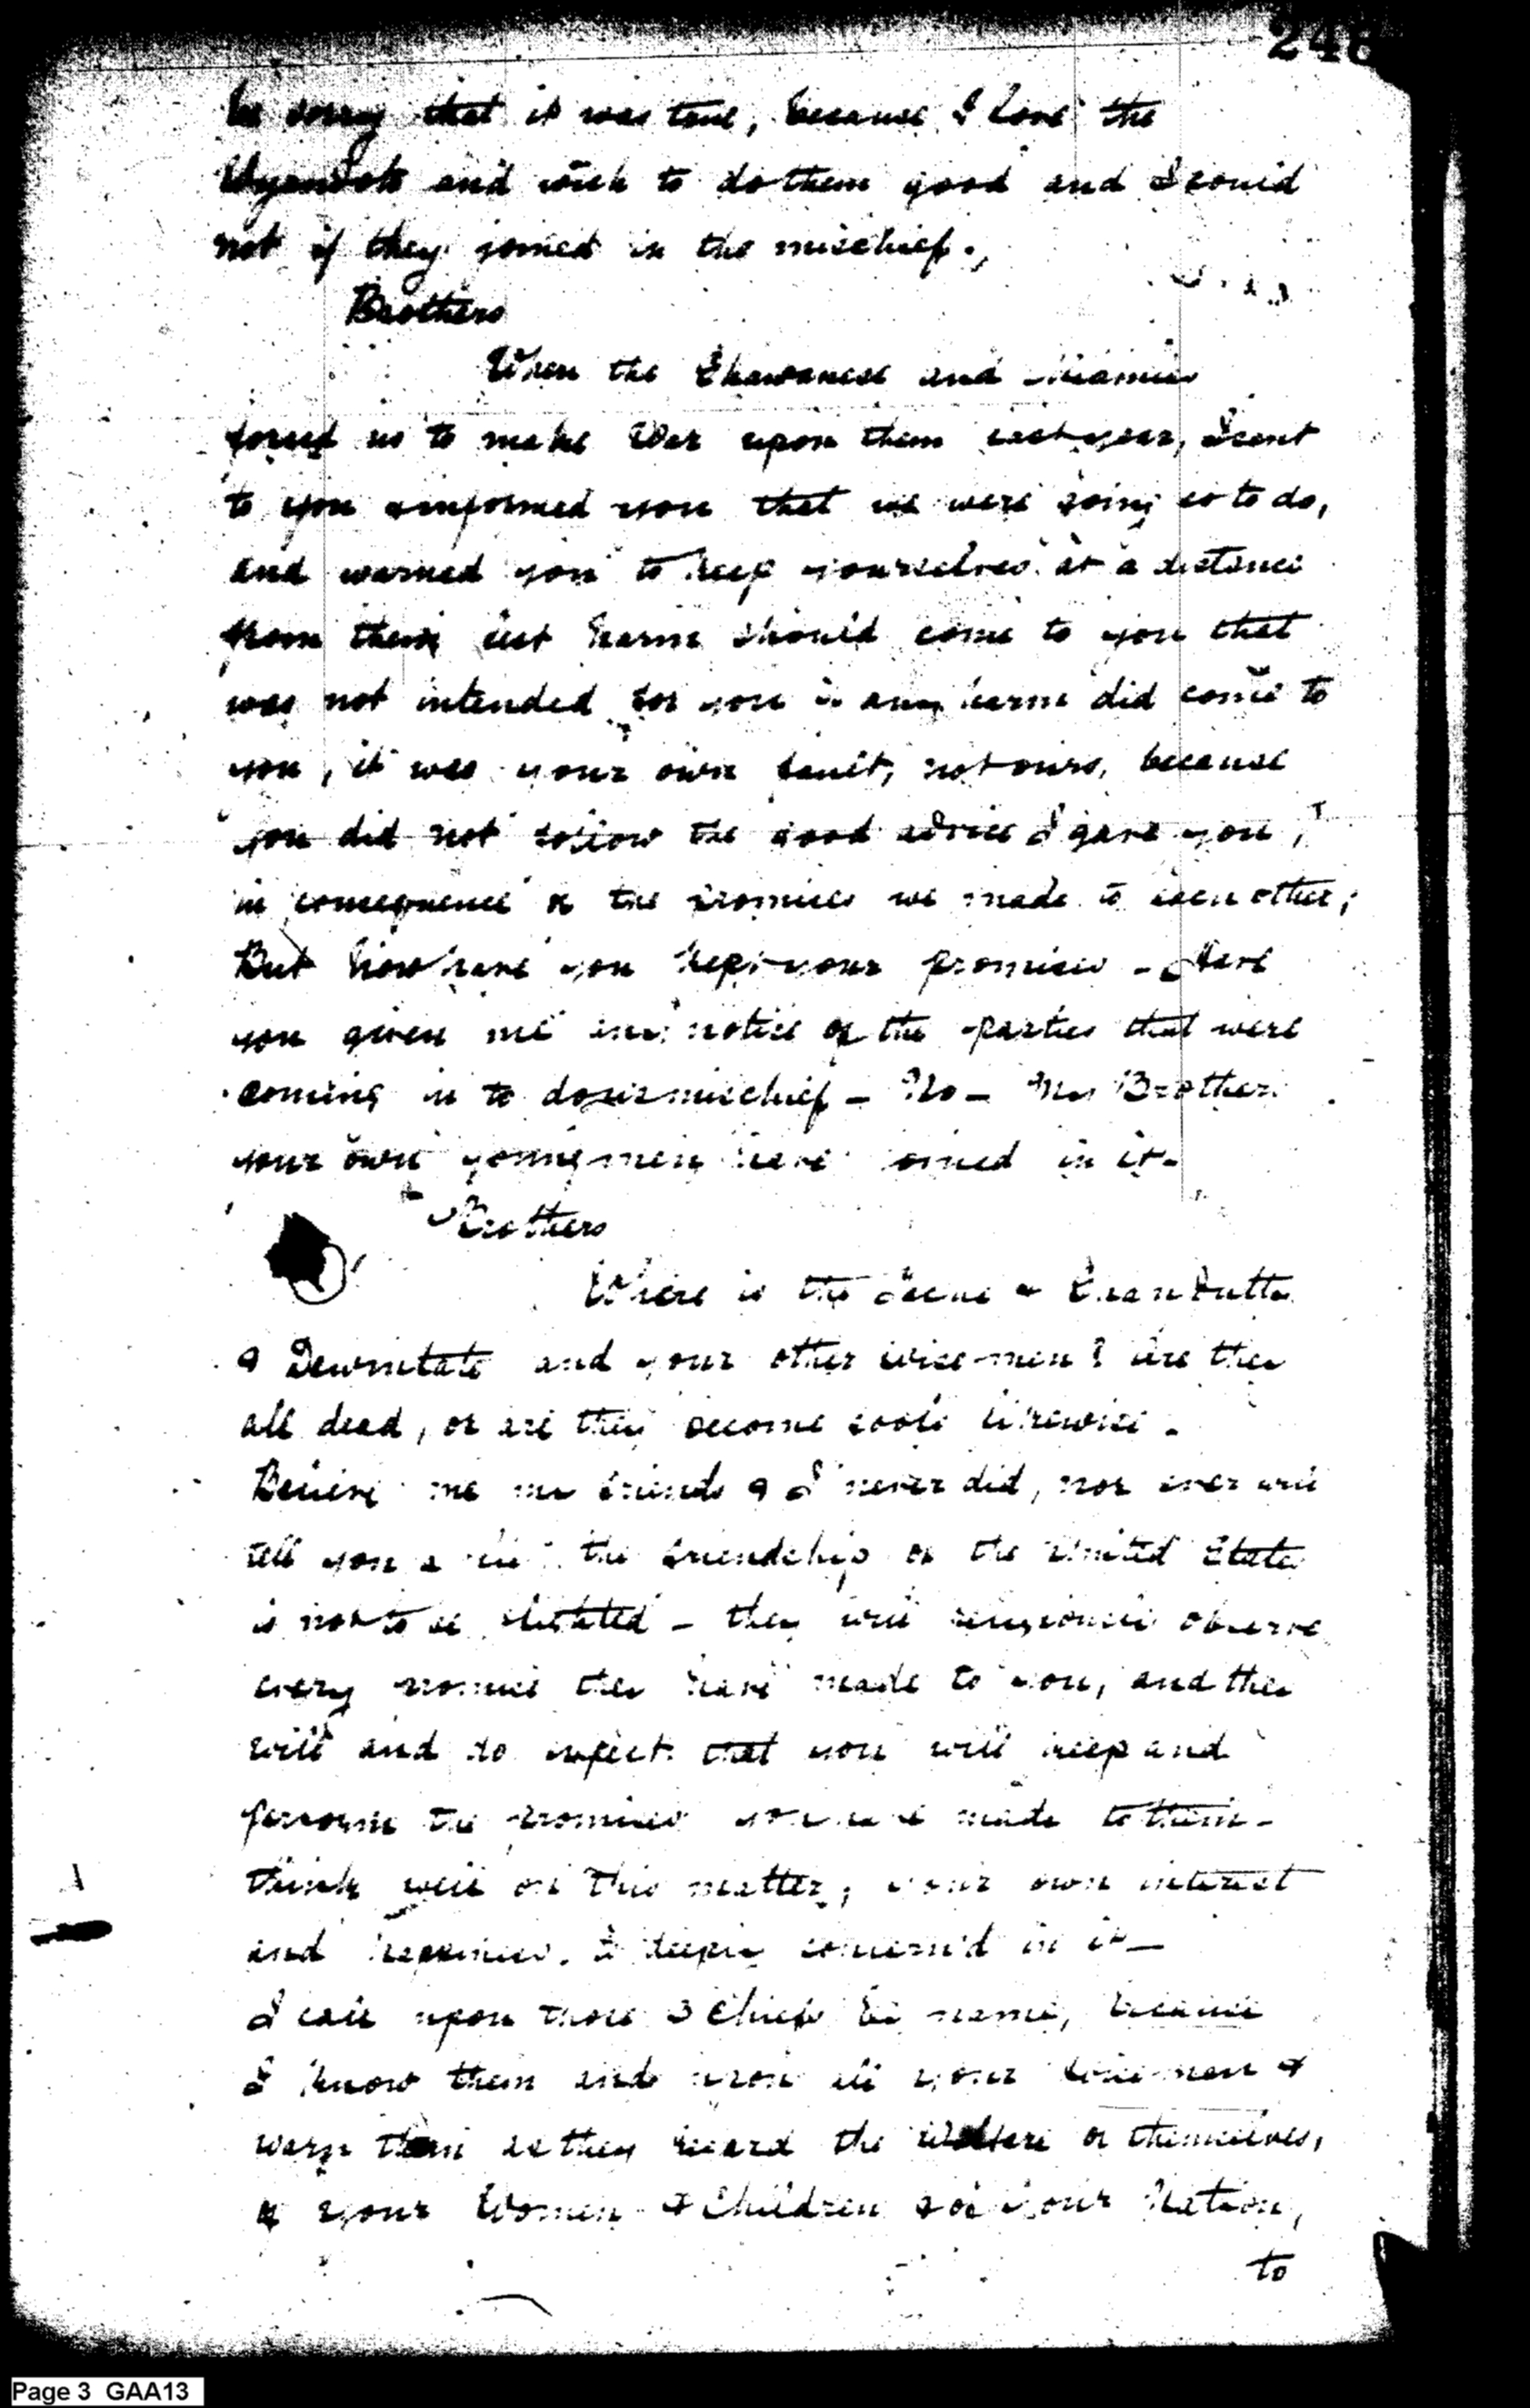 248
be sorry that it was true, because I love the
Wyandots and wish to do them good and I could
not if they joined in the mischief.
Brothers
When the Shawanese and Miamies
forced us to make War upon them last year, I sent
to you & informed you that we were going so to do,
and warned you to keep yourselves at a distance
from them lest harm should come to you that
was not intended for you if any harm did come to
you, it was your own fault, not ours, because
you did not follow the good advice I gave you,
in consequence of the promises we made to each other;
But how have you kept your promises - Have
you given me any notice of the parties that were
coming in to do us mischief - No - My Brother
your own young men have joined in it -
Brothers
Where is the &
& Dewintate and your other wise-men? Are they
all dead, or are they become fools likewise -
Believe me my friends I never did, nor ever will
tell you a lie the friendship of the United States
is not to be slighted - they will religiously observe
every promise they have made to you, and they
will and do expect that you will keep and
perform the promises you have made to them -
think well on this matter, your own interest
and happiness is deeply concern'd in it -
I call upon those 3 Chiefs by name, because
I know them and upon all your wise-men &
warn them as they regard the Welfare of themselves,
of your Women & Children & of your Nation,
to
Page 3 GAA13